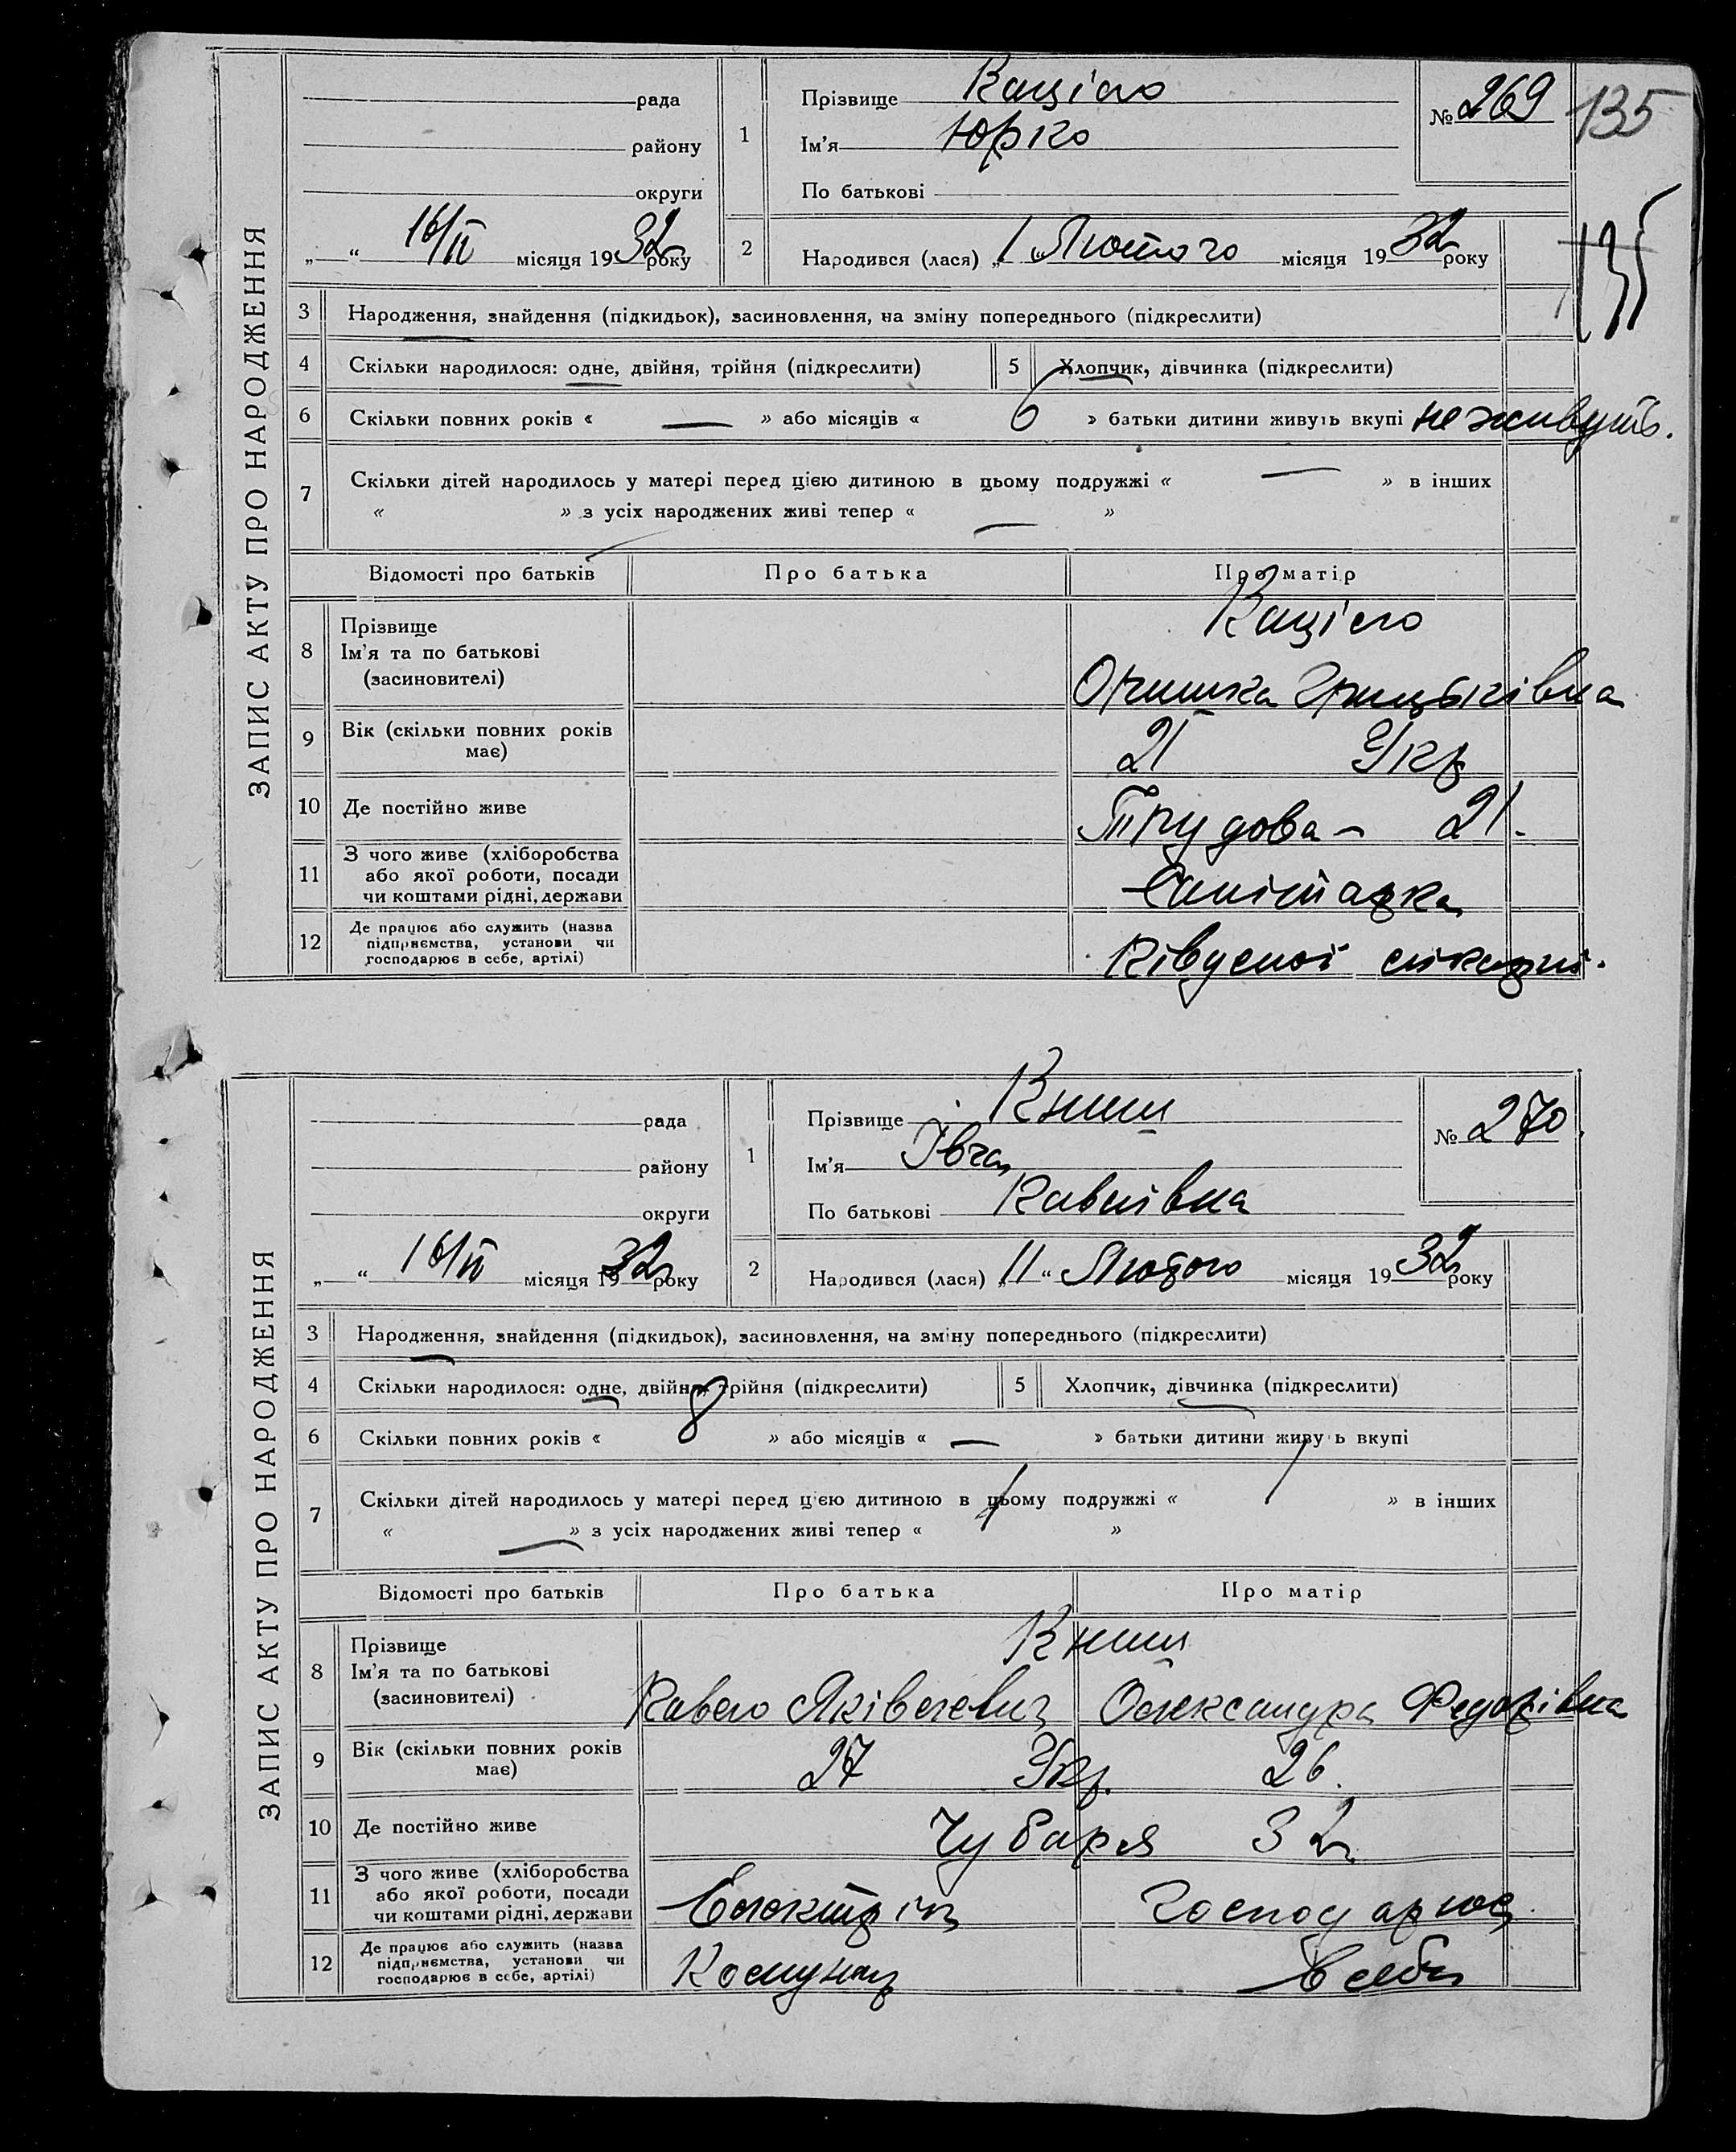 ЗАПИС АКТУ ПРО НАРОДЖЕННЯ
рада
району
округи
„ “ 16/II місяця 1932 року
1 Прізвище Каціло
Ім'я Юрко
По батькові
№ 269
135
135
2 Народився (лася) „1“ Лютого місяця 1932 року
3 Народження, знайдення (підкидьок), засиновлення, на зміну попереднього (підкреслити)
4 Скільки народилося: одне, двійня, трійня (підкреслити) 5 Хлопчик, дівчинка (підкреслити)
6 Скільки повних років « — » або місяців « » батьки дитини живуть вкупі не живуть.
7 Скільки дітей народилось у матері перед цією дитиною в цьому подружжі « — » в інших
« » з усіх народжених живі тепер « — »
Відомості про батьків Про батька Про матір
8 Прізвище Каціло
Ім'я та по батькові
(засиновителі) Оришка Грицьківна
9 Вік (скільки повних років має) 21 Укр
10 Де постійно живе Трудова – 21.
11 З чого живе (хліборобства або якої роботи, посади чи коштами рідні, держави Санітарка
12 Де працює або служить (назва підприємства, установи чи господарює в себе, артілі)
ЗАПИС АКТУ ПРО НАРОДЖЕННЯ
рада
району
округи
„ “ 16/II місяця 1932 року
1 Прізвище Книш
Ім'я
По батькові Павлівна
№ 270
2 Народився (лася) „11“ Лютого місяця 1932 року
3 Народження, знайдення (підкидьок), засиновлення, на зміну попереднього (підкреслити)
4 Скільки народилося: одне, двійня, трійня (підкреслити) 5 Хлопчик, дівчинка (підкреслити)
6 Скільки повних років « 8 » або місяців « — » батьки дитини живуть вкупі
7 Скільки дітей народилось у матері перед цією дитиною в цьому подружжі « 1 » в інших
« — » з усіх народжених живі тепер « 1 »
Відомості про батьків Про батька Про матір
8 Прізвище Книш
Ім'я та по батькові
(засиновителі) Павло Яківлевич Олександра Федорівна
9 Вік (скільки повних років має) 27 Укр. 26.
10 Де постійно живе Чубаря 32
11 З чого живе (хліборобства або якої роботи, посади чи коштами рідні, держави Електрік Господарює
12 Де працює або служить (назва підприємства, установи чи господарює в себе, артілі) Комунар в себе